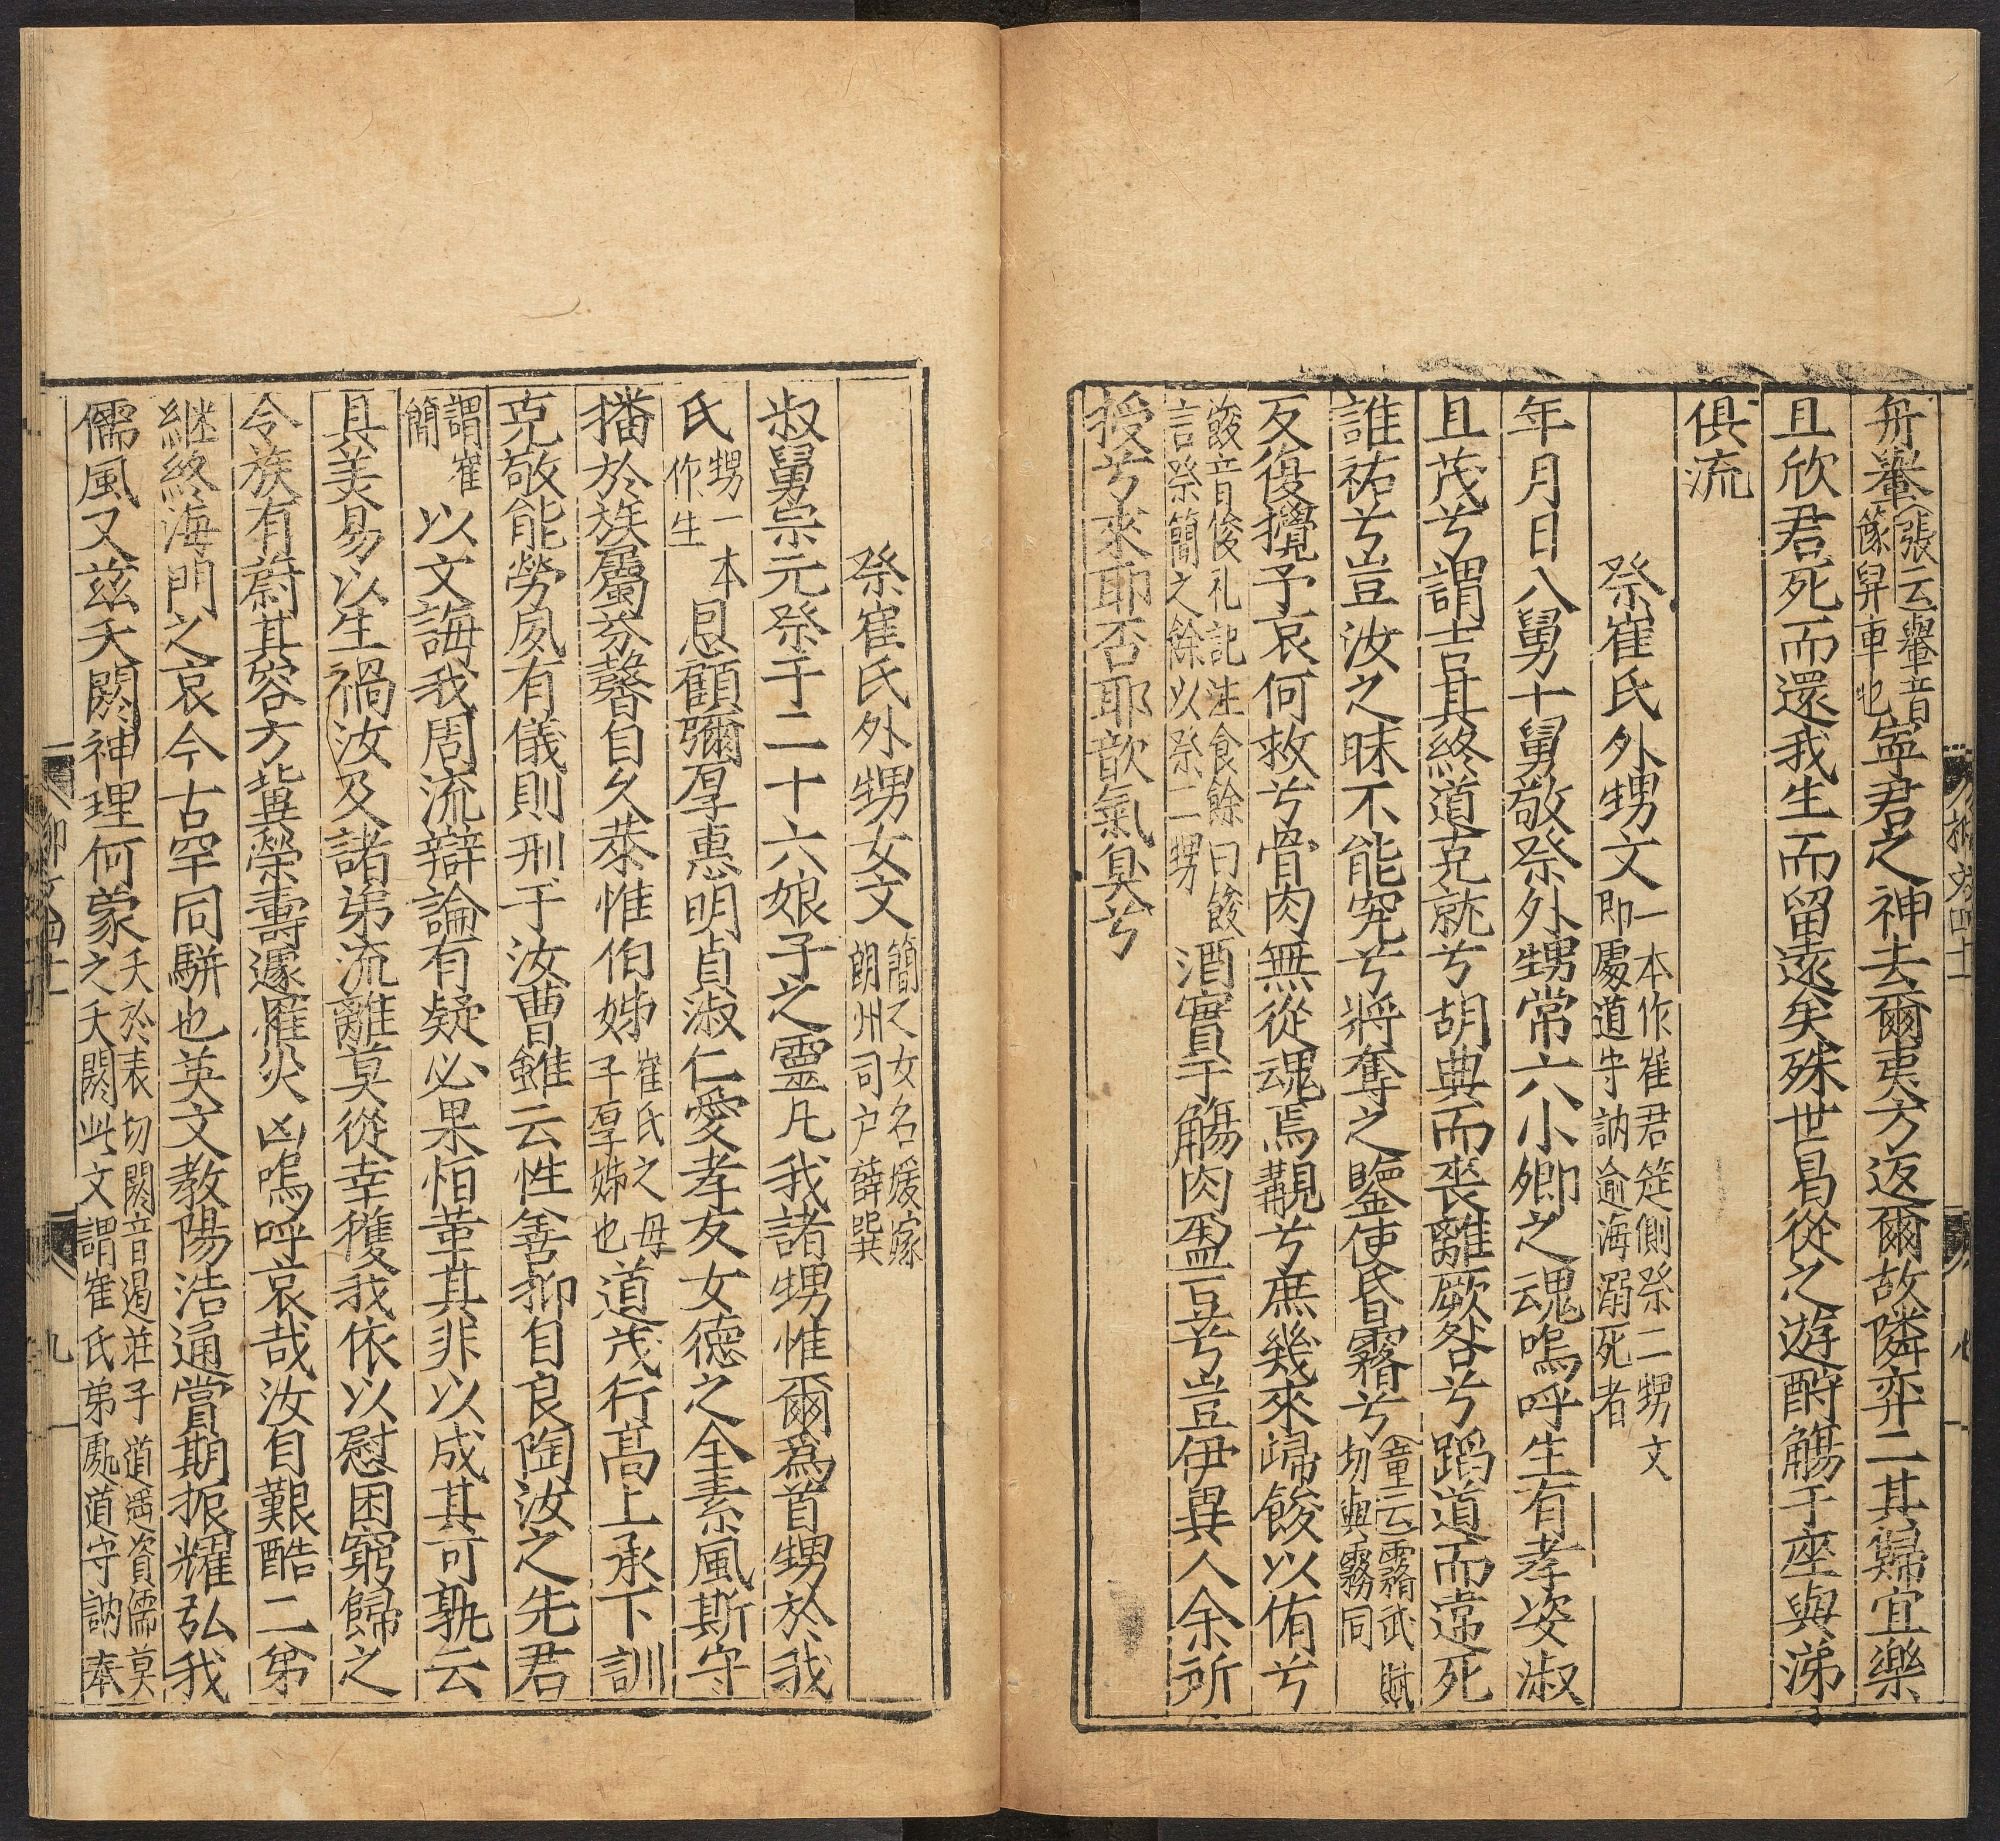 舟轝張云轝音
篆舁車也寍君之神去爾夷方返爾故隣弈二其歸宜樂
且欣君死而還我生而留遠矣殊世曷從之遊酹觴于座與涕
俱流
祭崔氏外甥文一本作崔君筵側祭二甥文
即處道守訥逾海溺死者
年月日八舅十舅敬祭外甥常六小卿之魂嗚呼生有孝姿淑
且茂兮謂吉其終道克就兮胡典而喪離厥咎兮蹈道而常死
誰祐兮豈汝之昧不能究兮將奪之鑒使昏霿兮童云霿武賦
切與霧同
反復攪予哀何救兮骨肉無從魂焉覯兮庶幾來歸餕以侑兮
餕音俊礼記注食餘曰餕
言祭簡之餘以祭二甥酒實于觴肉盈豆兮豈伊異人余所
授兮來耶否耶歆氣臭兮
柳文四十一
祭崔氏外甥女文簡之女名媛嫁
朗州司户薛巽
叔舅宗元祭于二十六娘子之靈凡我諸甥惟爾爲首甥於我
氏甥一本
作生恩顧彌厚惠明貞淑仁愛孝友女德之全素風斯守
播於族屬芬馨自久恭惟伯姊崔氏之母
子厚姊也道茂行高上承下訓
克敬能勞夙有儀則刑于汝曹雖云性善抑自良陶汝之先君
謂崔
簡以文誨我周流辯論有疑必果怕革其非以成其可孰云
具美易以生禍汝及諸弟流離莫從幸獲我依以慰困窮歸之
令族有蔚其容方冀榮壽遽罹災凶嗚呼哀哉汝自艱酷二弟
継終海門之哀今古罕同駢也英文教陽浩通賞期振耀弘我
儒風又茲夭閼神理何蒙夭於表切閼音遏荘子道遥資儒莫
之夭閼此文謂崔氏弟處道守訥奉
九